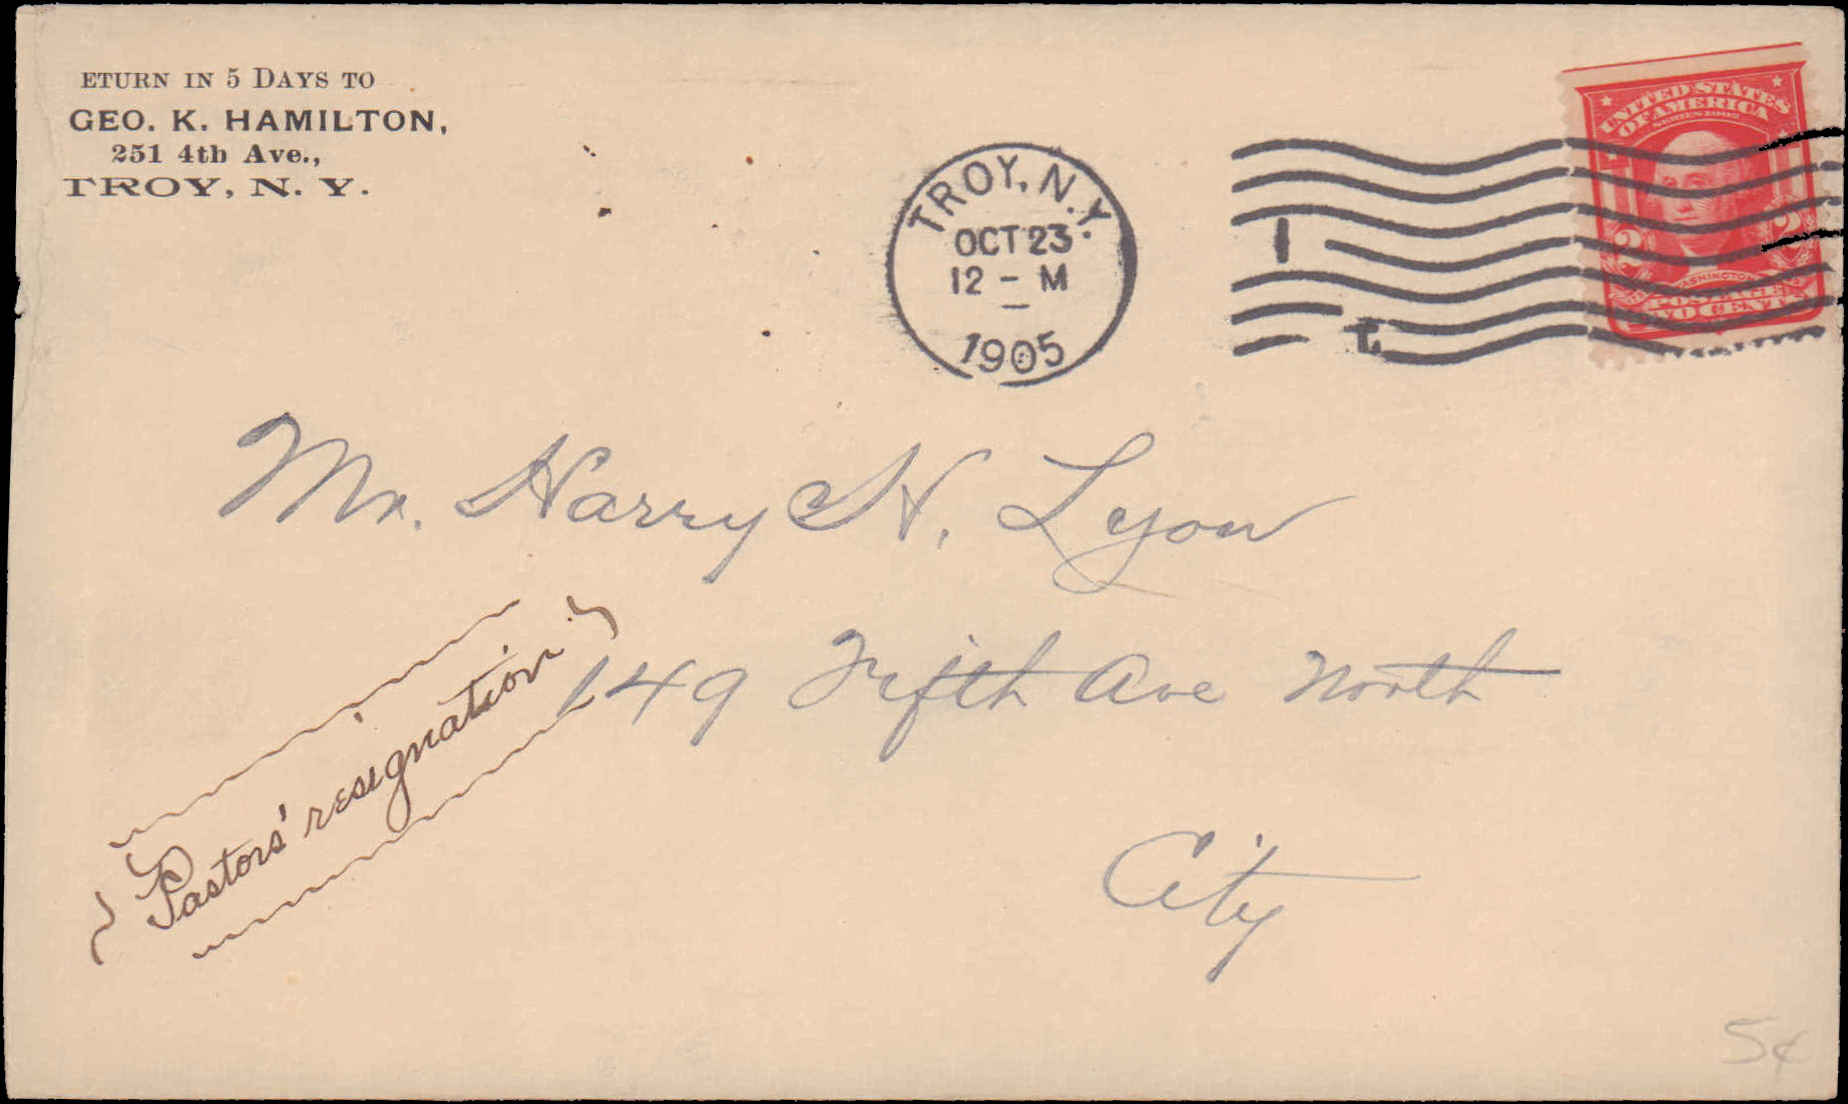 ETURN IN 5 DAYS TO
GEO. K. HAMILTON,
251 4th Ave.,
TROY, N. Y.
TROY, N.Y.
OCT 23
12 - M
1905
1
UNITED STATES
OF AMERICA
SERIES 1902
2 2
WASHINGTON
POSTAGE
TWO CENTS
Mr. Harry H. Lyon
149 Fifth Ave North
City
Pastors' resignation
5¢